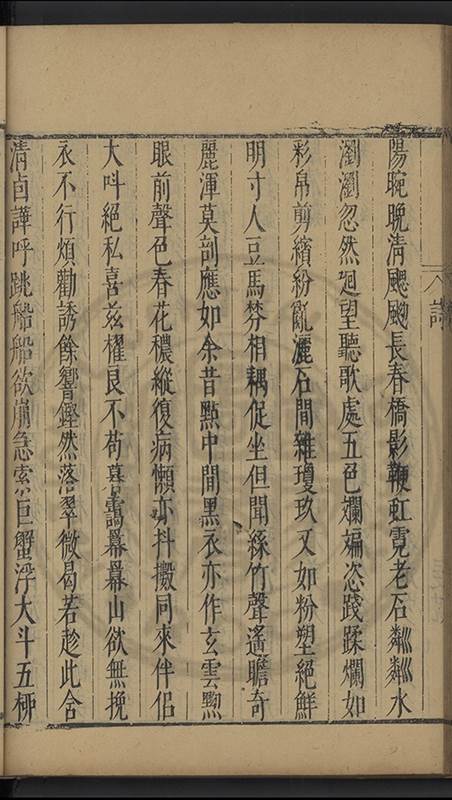 陽晼晚清颸颸長春橋影鞭虹霓老石粼粼水
瀏瀏忽然廻望聽歌處五色斕斒恣踐蹂爛如
彩帛剪繽紛亂灑石間雜瓊玖又如粉塑絕鮮
明寸人豆馬棼相耦促坐但聞絲竹聲遙瞻奇
麗渾莫剖應如余昔點中間黑衣亦作玄雲黝
眼前聲色春花穠縱復病懶亦抖擻同來伴侶
大呌絕私喜兹櫂良不苟暮靄羃羃山欲無挽
衣不行煩勸誘餘響鏗然落翠微曷若趁此舍
清卣譁呼跳船船欲崩急索巨蟹浮大斗五栁